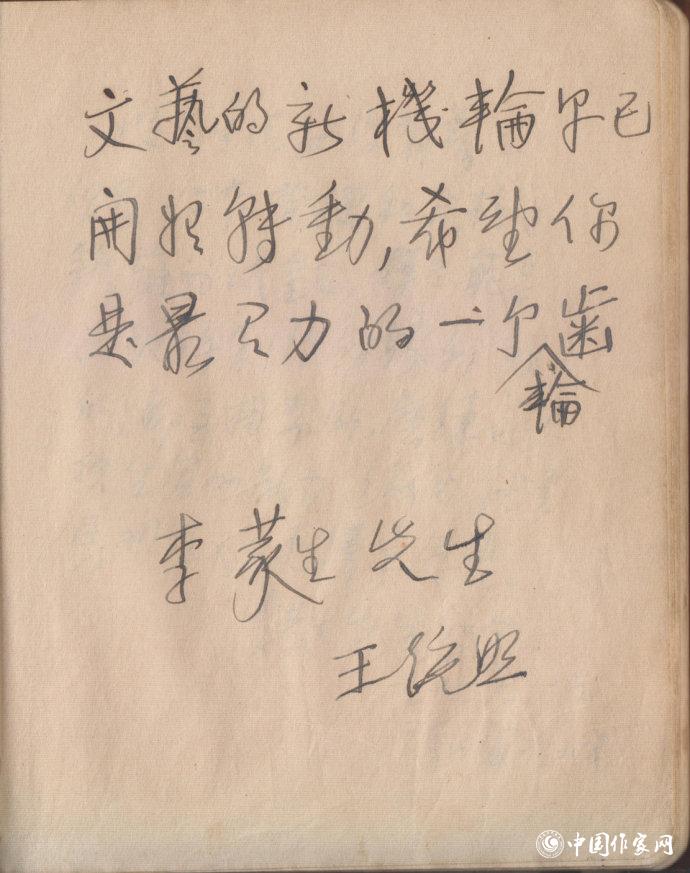 文藝的新機輪早已
開始轉動,希望你
是最有力的一个齒
輪
李蕤生先生
王统照
中国作家网